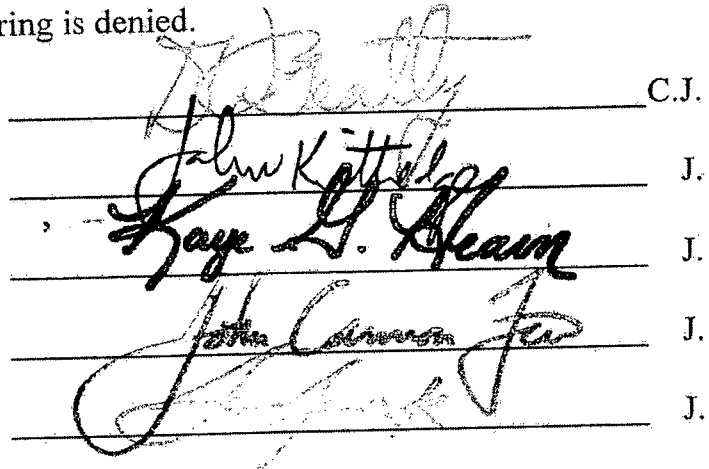 ring is denied.
D W Beatty C.J.
John Kittredge J.
Kaye G. Hearn J.
John Cannon Few J.
J.